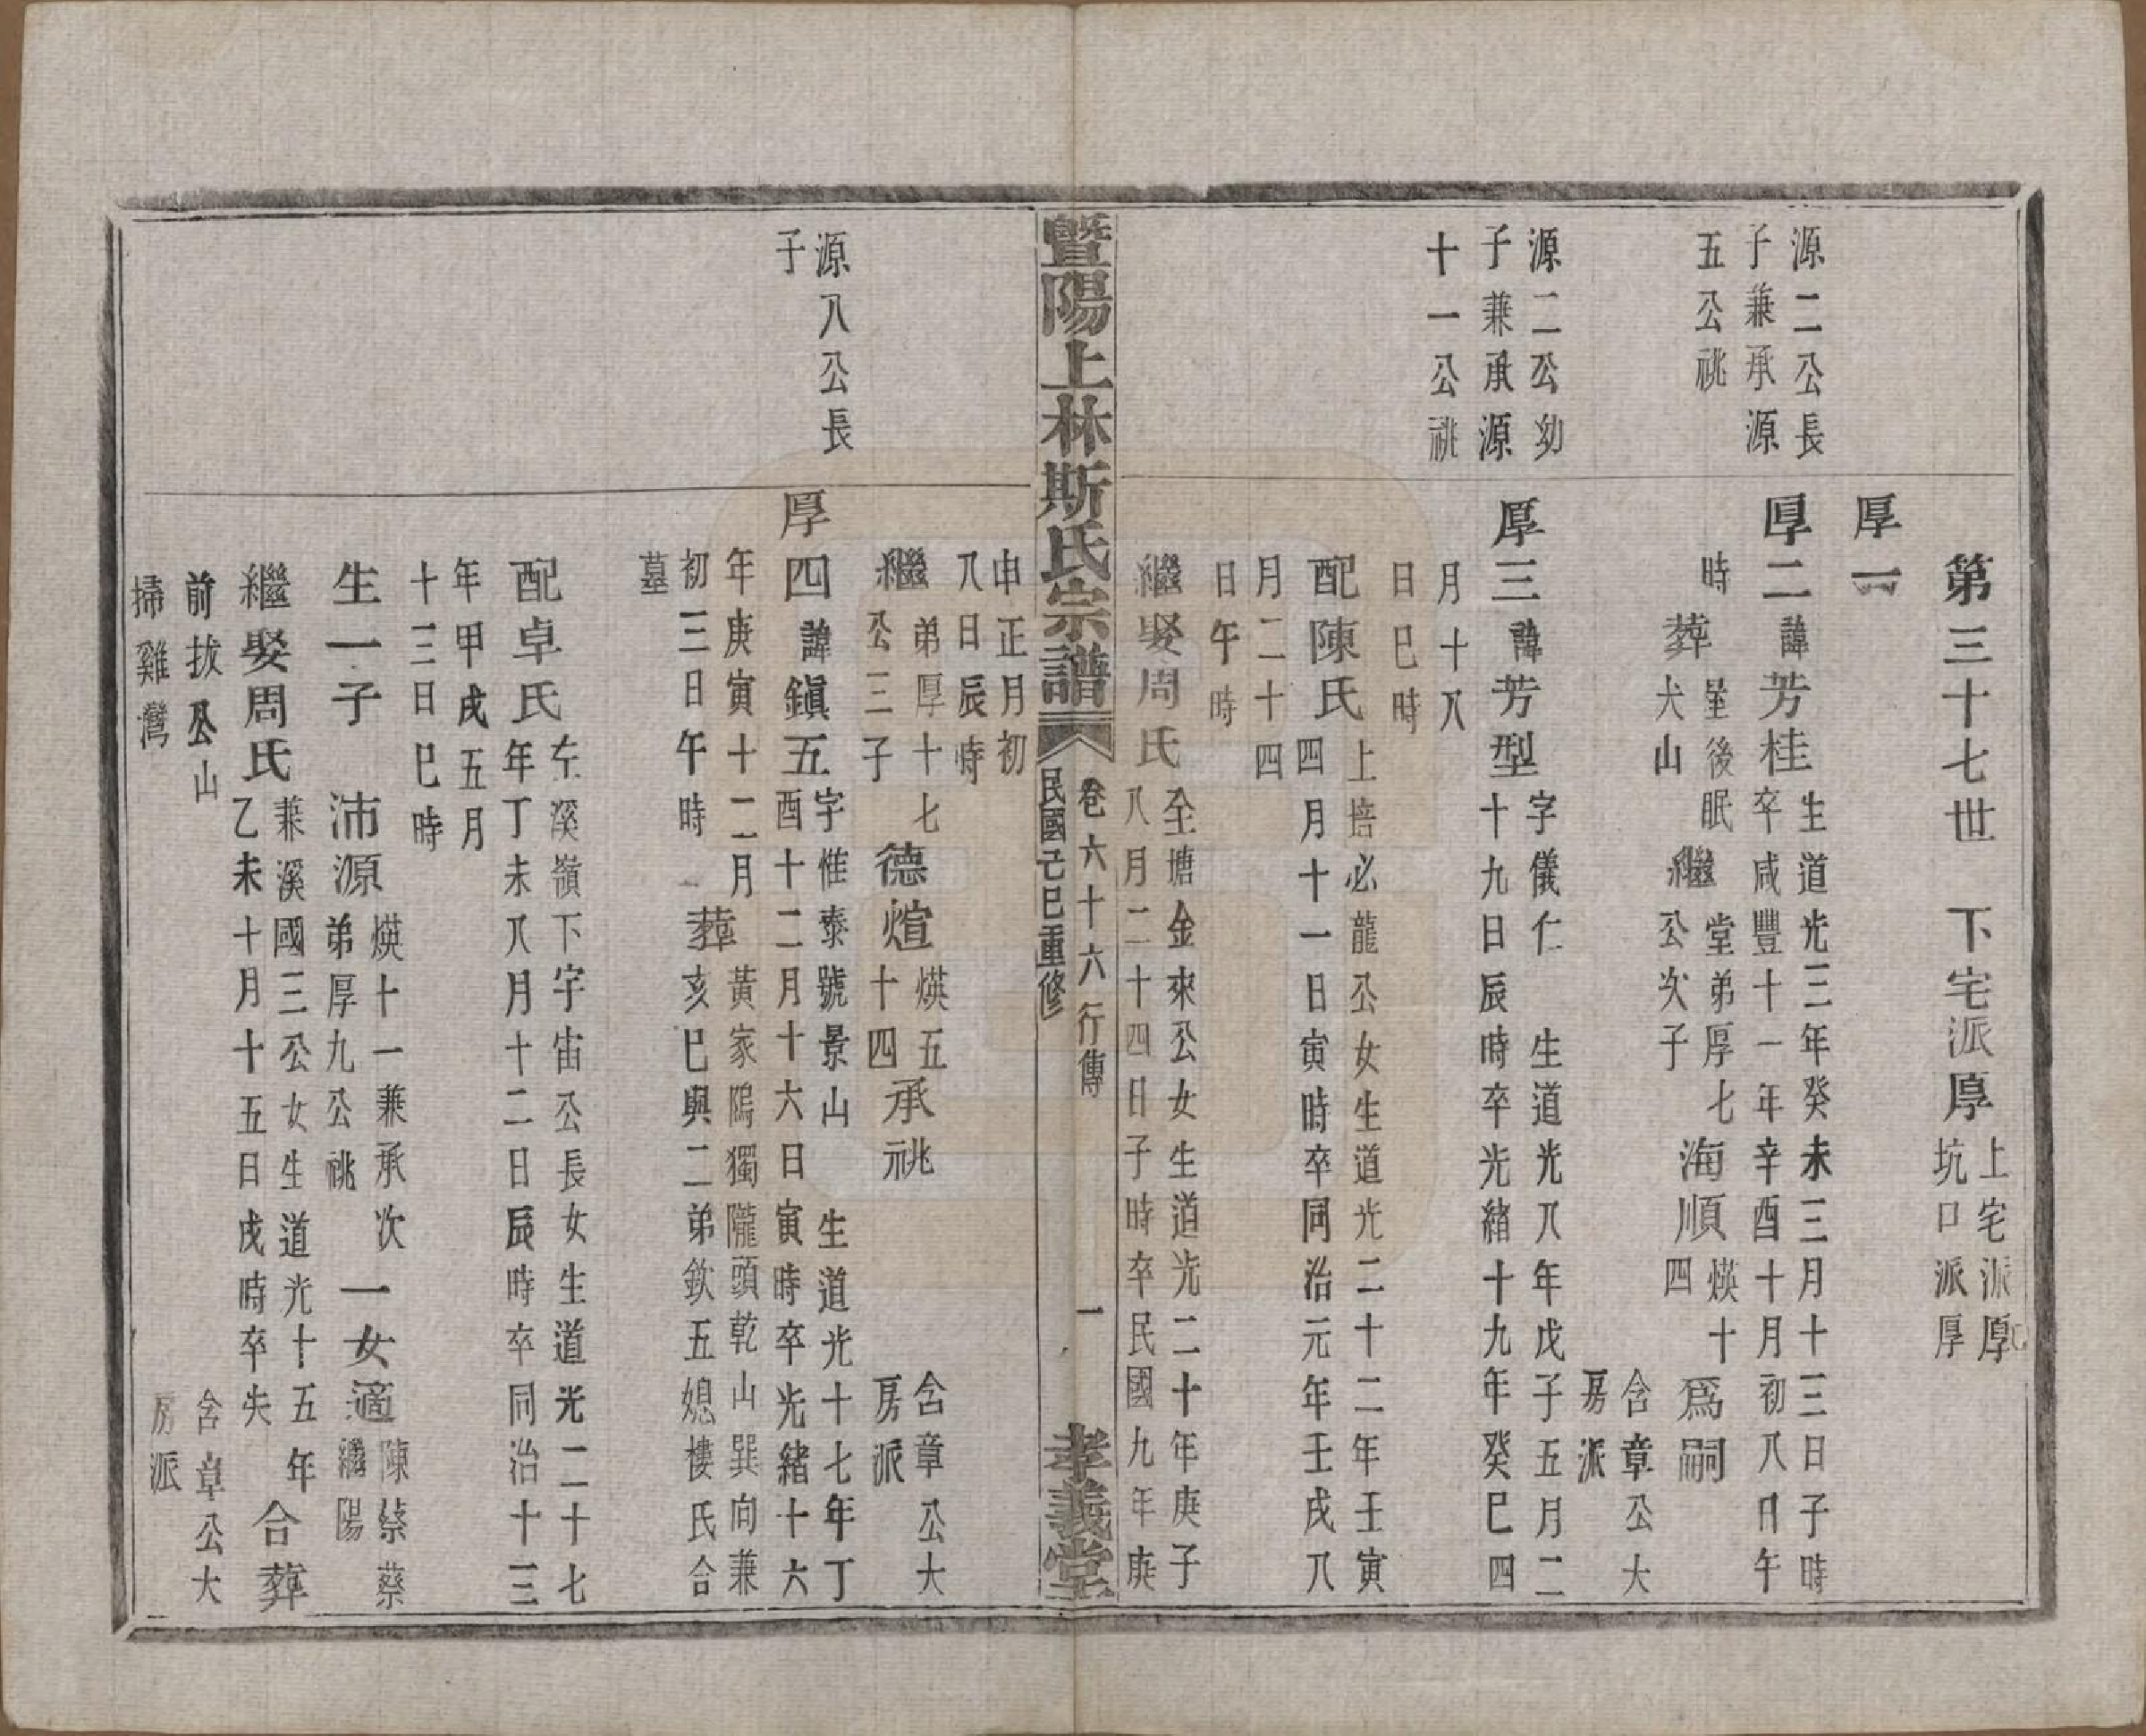 第三十七世　下宅派厚
上宅派厚
坑口派厚
厚一
源二公長
子兼承源
五公祧
厚二諱芳桂
生道光三年癸未三月十三日子時
卒咸豐十一年辛酉十月初八日午
時
葬
塋後眠
犬山
繼
堂弟厚七
公次子
海順
煐十
四
爲嗣
含章公大
房派
源二公幼
子兼承源
十一公祧
厚三諱芳型
字儀仁　生道光八年戊子五月二
十九日辰時卒光緒十九年癸巳四
月十八
日巳時
配陳氏
上培必龍公女生道光二十二年壬寅
四月十一日寅時卒同治元年壬戌八
月二十四
日午時
繼娶周氏
至塘金來公女生道光二十年庚子
八月二十四日子時卒民國九年庚
暨陽上林斯氏宗譜
卷六十六行傳
民國己巳重修
一
孝義堂
申正月初
八日辰時
繼
弟厚十七
公三子
德煊
煐五
十四
承祧
含章公大
房派
源八公長
子
厚四諱鎮五
字惟泰號景山　生道光十七年丁
酉十二月十六日寅時卒光緒十六
年庚寅十二月
初三日午時
葬
黃家隖獨隴頭乾山巽向兼
亥巳與二弟欽五媳樓氏合
墓
配卓氏
左溪嶺下宇宙公長女生道光二十七
年丁未八月十二日辰時卒同治十三
年甲戌五月
十三日巳時
生一子　沛源
煐十一兼承次
弟厚九公祧
一女適
陳蔡蔡
繼陽
繼娶周氏
兼溪國三公女生道光十五年
乙未十月十五日戌時卒失
合葬
前拔公山
掃雞灣
含章公大
房派